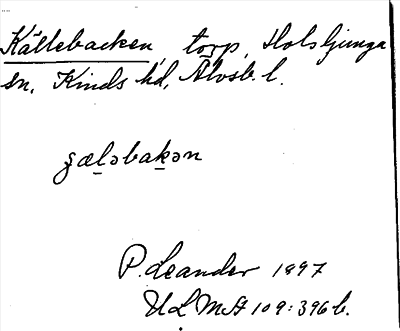 Källebacken, torp, Holsljunga
sn, Kinds hd, Älvsb. l.
şæləbakən
P. Leander 1897
ULMA 109:396 b.